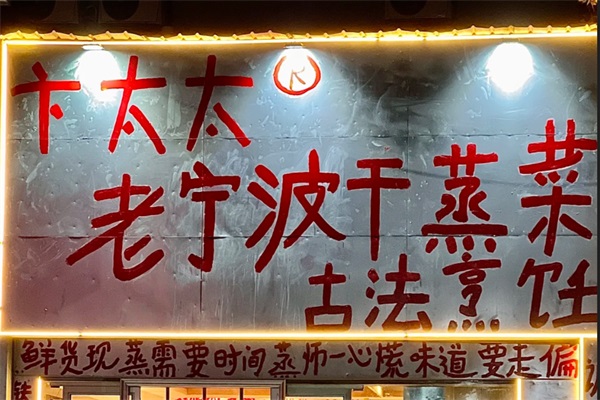 卞太太®
老宁波干蒸菜
古法烹饪
鲜货现蒸需要时间蒸师一心慌味道要走偏
铁